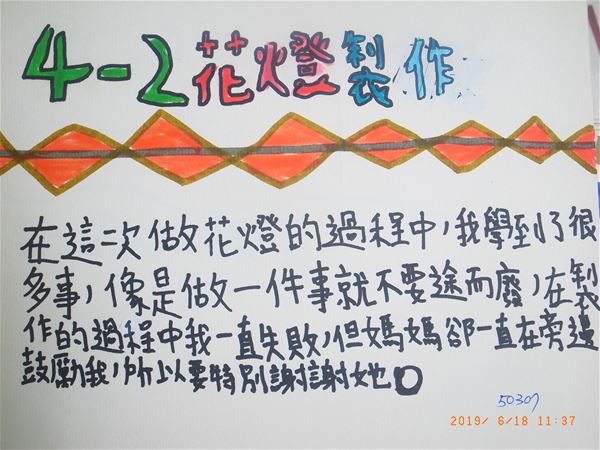 4-2花燈製作
在這次做花燈的過程中，我學到了很
多事，像是做一件事就不要途而廢，在製
作的過程中我一直失敗，但媽媽卻一直在旁邊
鼓勵我，所以要特別謝謝她。
50307
2019/ 6/18 11:37